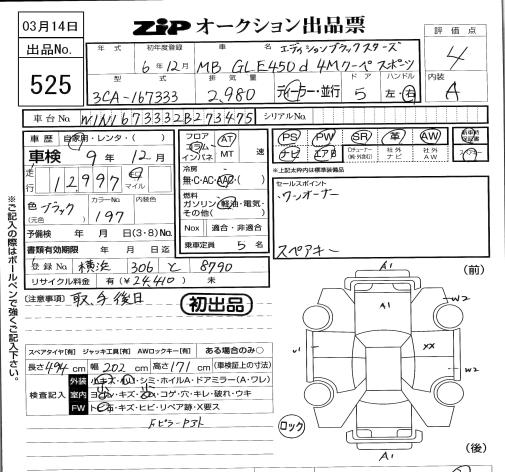 03月14日
ZIP オークション出品票
出品No.
525
評価点
4
内装
A
年式
初年度登録
車名
6年12月
エディションブラックスターズ
MB GLE450d 4Mクーペ スポーツ
型式
排気量
ドア
ハンドル
3CA-167333
2,980
ディーラー・並行
5
左・右
車台No.
W1N1673332B273475
シリアルNo.
車歴
自家用・レンタ・( )
車検
9年12月
走行
12,997
km
マイル
色
(元色)
ブラック
カラーNo.
197
内装色
予備検 年 月 日(3・8)
書類有効期限 年 月 日迄
登録No.
横浜 306 と 8790
リサイクル料金 有(¥24,410) 未
フロア
コラム
インパネ
AT
MT
速
冷房
無・C・AC・AAC・( )
燃料
ガソリン・軽油・電気・
その他( )
Nox
適合・非適合
乗車定員
5名
PS
PW
SR
革
AW
ナビ
エアB
社外
ナビ
社外
AW
*上記太枠内は標準装備品
セールスポイント
・ワンオーナー
スペアキー
(注意事項)
取、手後日
初出品
※ご記入の際はボールペンで強くご記入下さい。
スペアタイヤ[有] ジャッキ工具[有] AWロックキー[有] ある場合のみ○
長さ494cm 幅202cm 高さ171cm (車検証上の寸法)
検査記入
外装
小キズ・小凹・シミ・ホイルA・ドアミラー(A・ワレ)
室内
ヨゴレ・キズ・スレ・コゲ・穴・キレ・破れ・ウキ
FW
トビ石・キズ・ヒビ・リペア跡・X要ス
ロック
(前)
A1
A1
W2
U1
XX
W2
A1
(後)